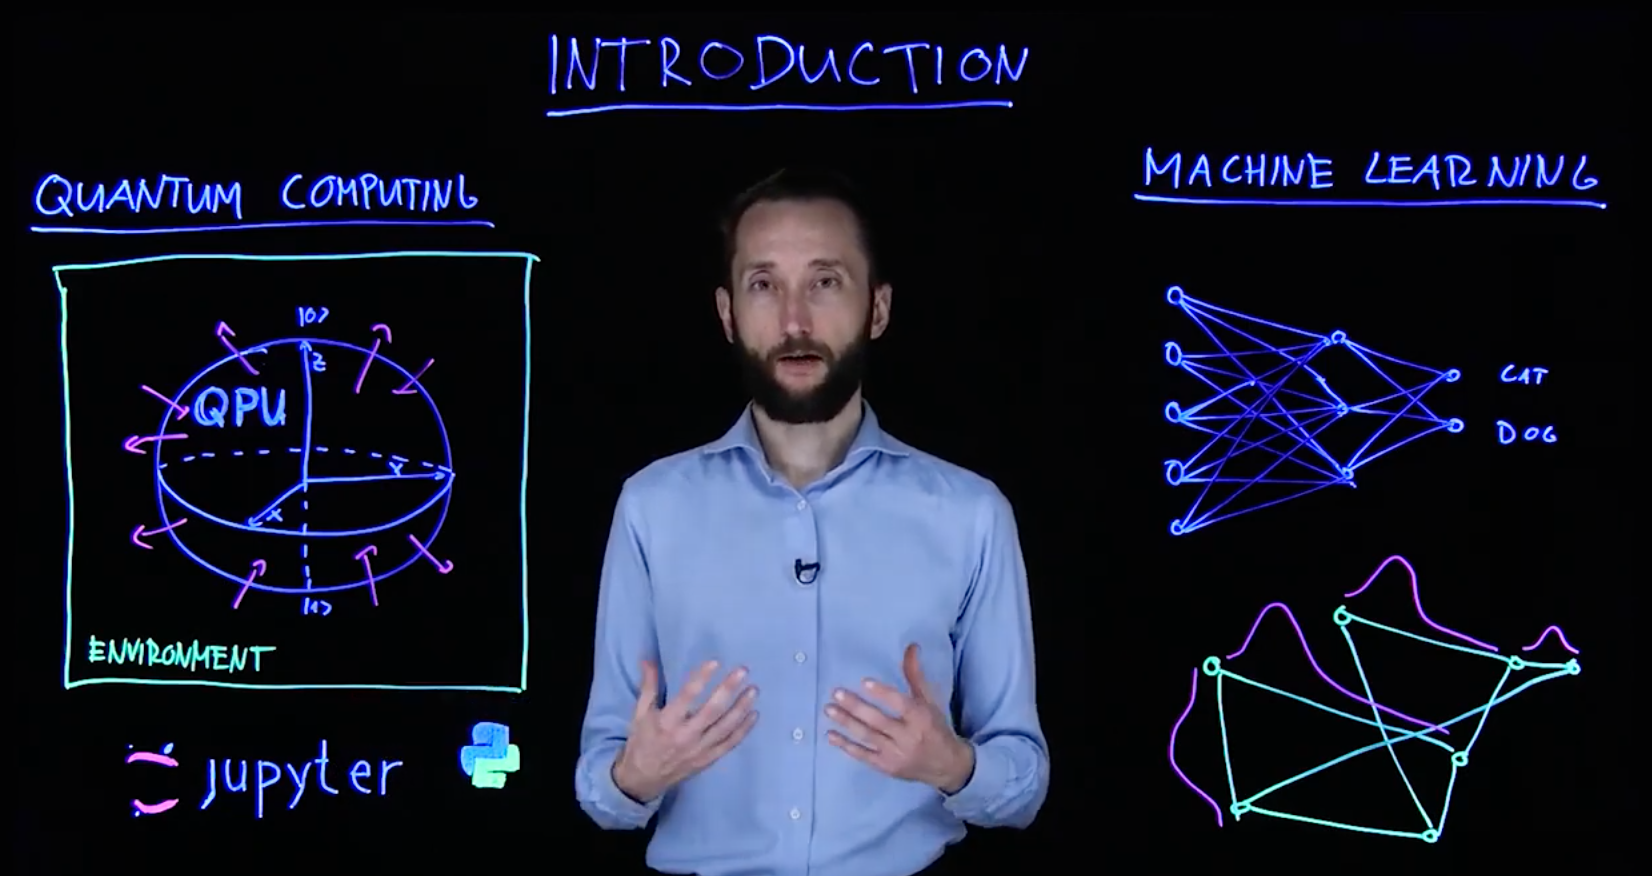 INTRODUCTION
QUANTUM COMPUTING
|0>
Z
QPU
Y
X
|1>
ENVIRONMENT
jupyter
MACHINE LEARNING
CAT
DOG